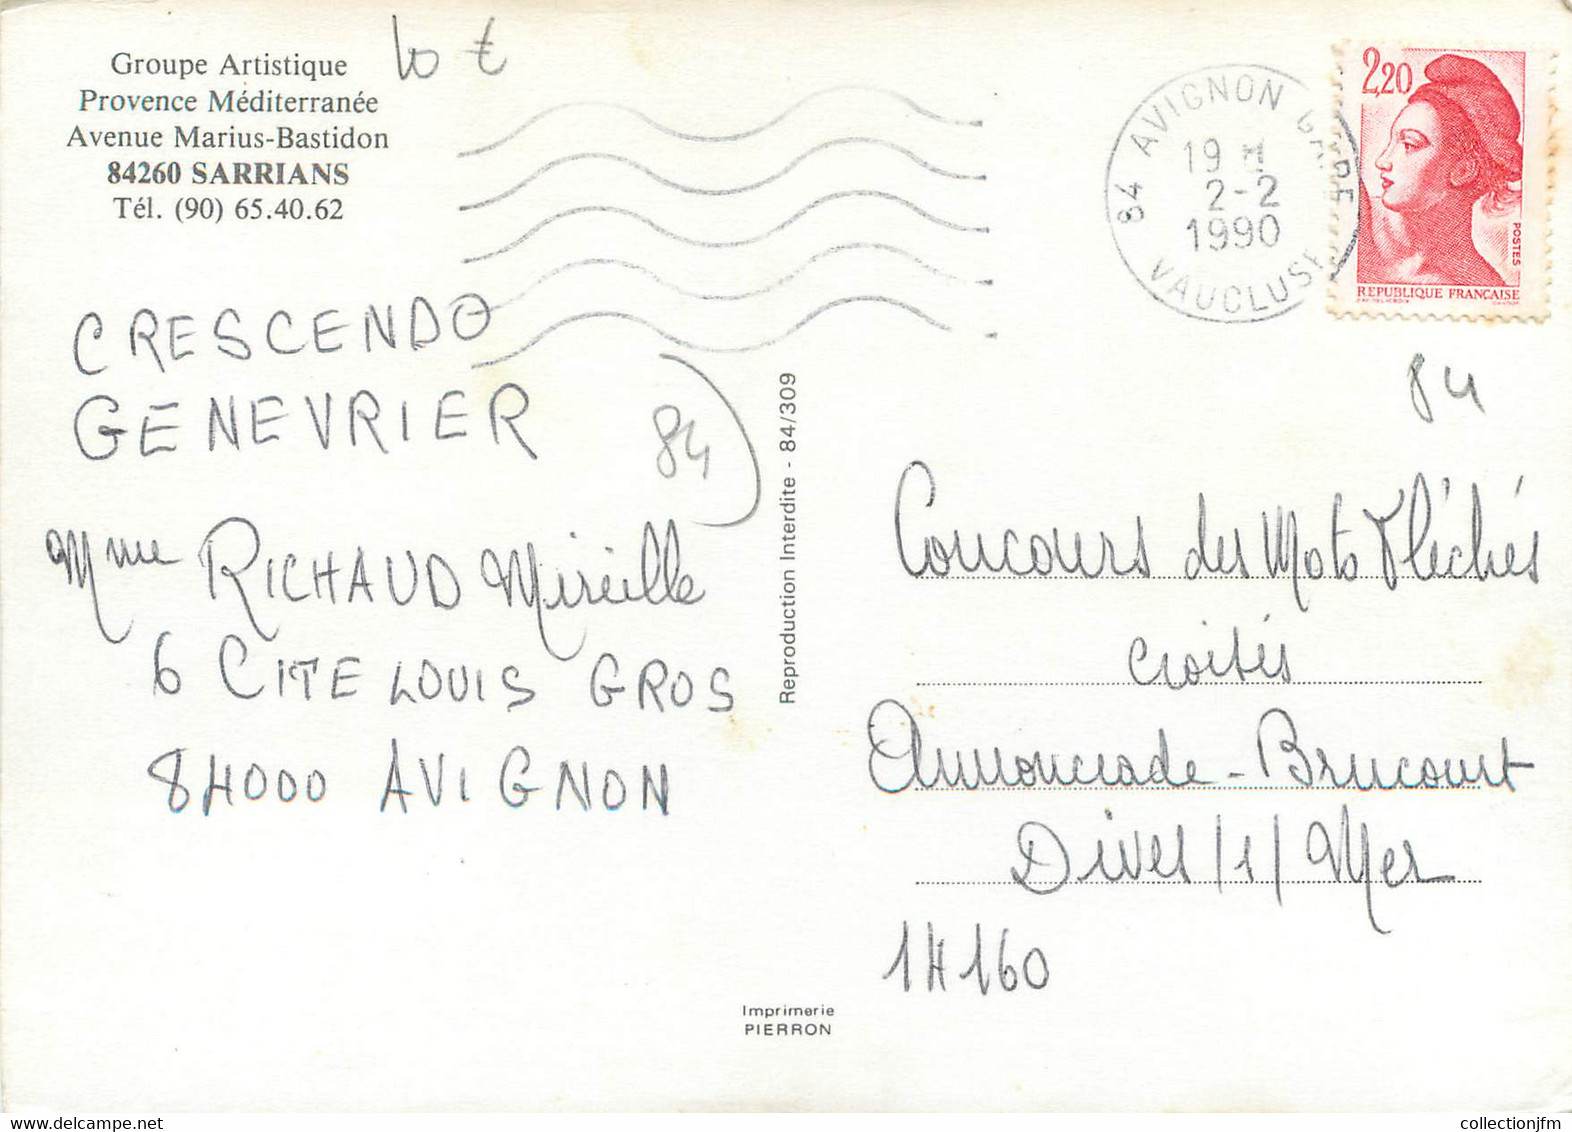 Groupe Artistique
Provence Méditerranée
Avenue Marius-Bastidon
84260 SARRIANS
Tél. (90) 65.40.62
10 €
84 AVIGNON GARE
19 H
2-2
1990
VAUCLUSE
2,20
POSTES
REPUBLIQUE FRANÇAISE
CRESCENDO
GENEVRIER
84
Mme RICHAUD Mireille
6 CITE LOUIS GROS
84000 AVIGNON
Reproduction Interdite - 84/309
84
Concours des Moto Fléchés
croisés
Annonciade - Brucourt
Dives /s/ Mer
14160
Imprimerie
PIERRON
collectionjfm